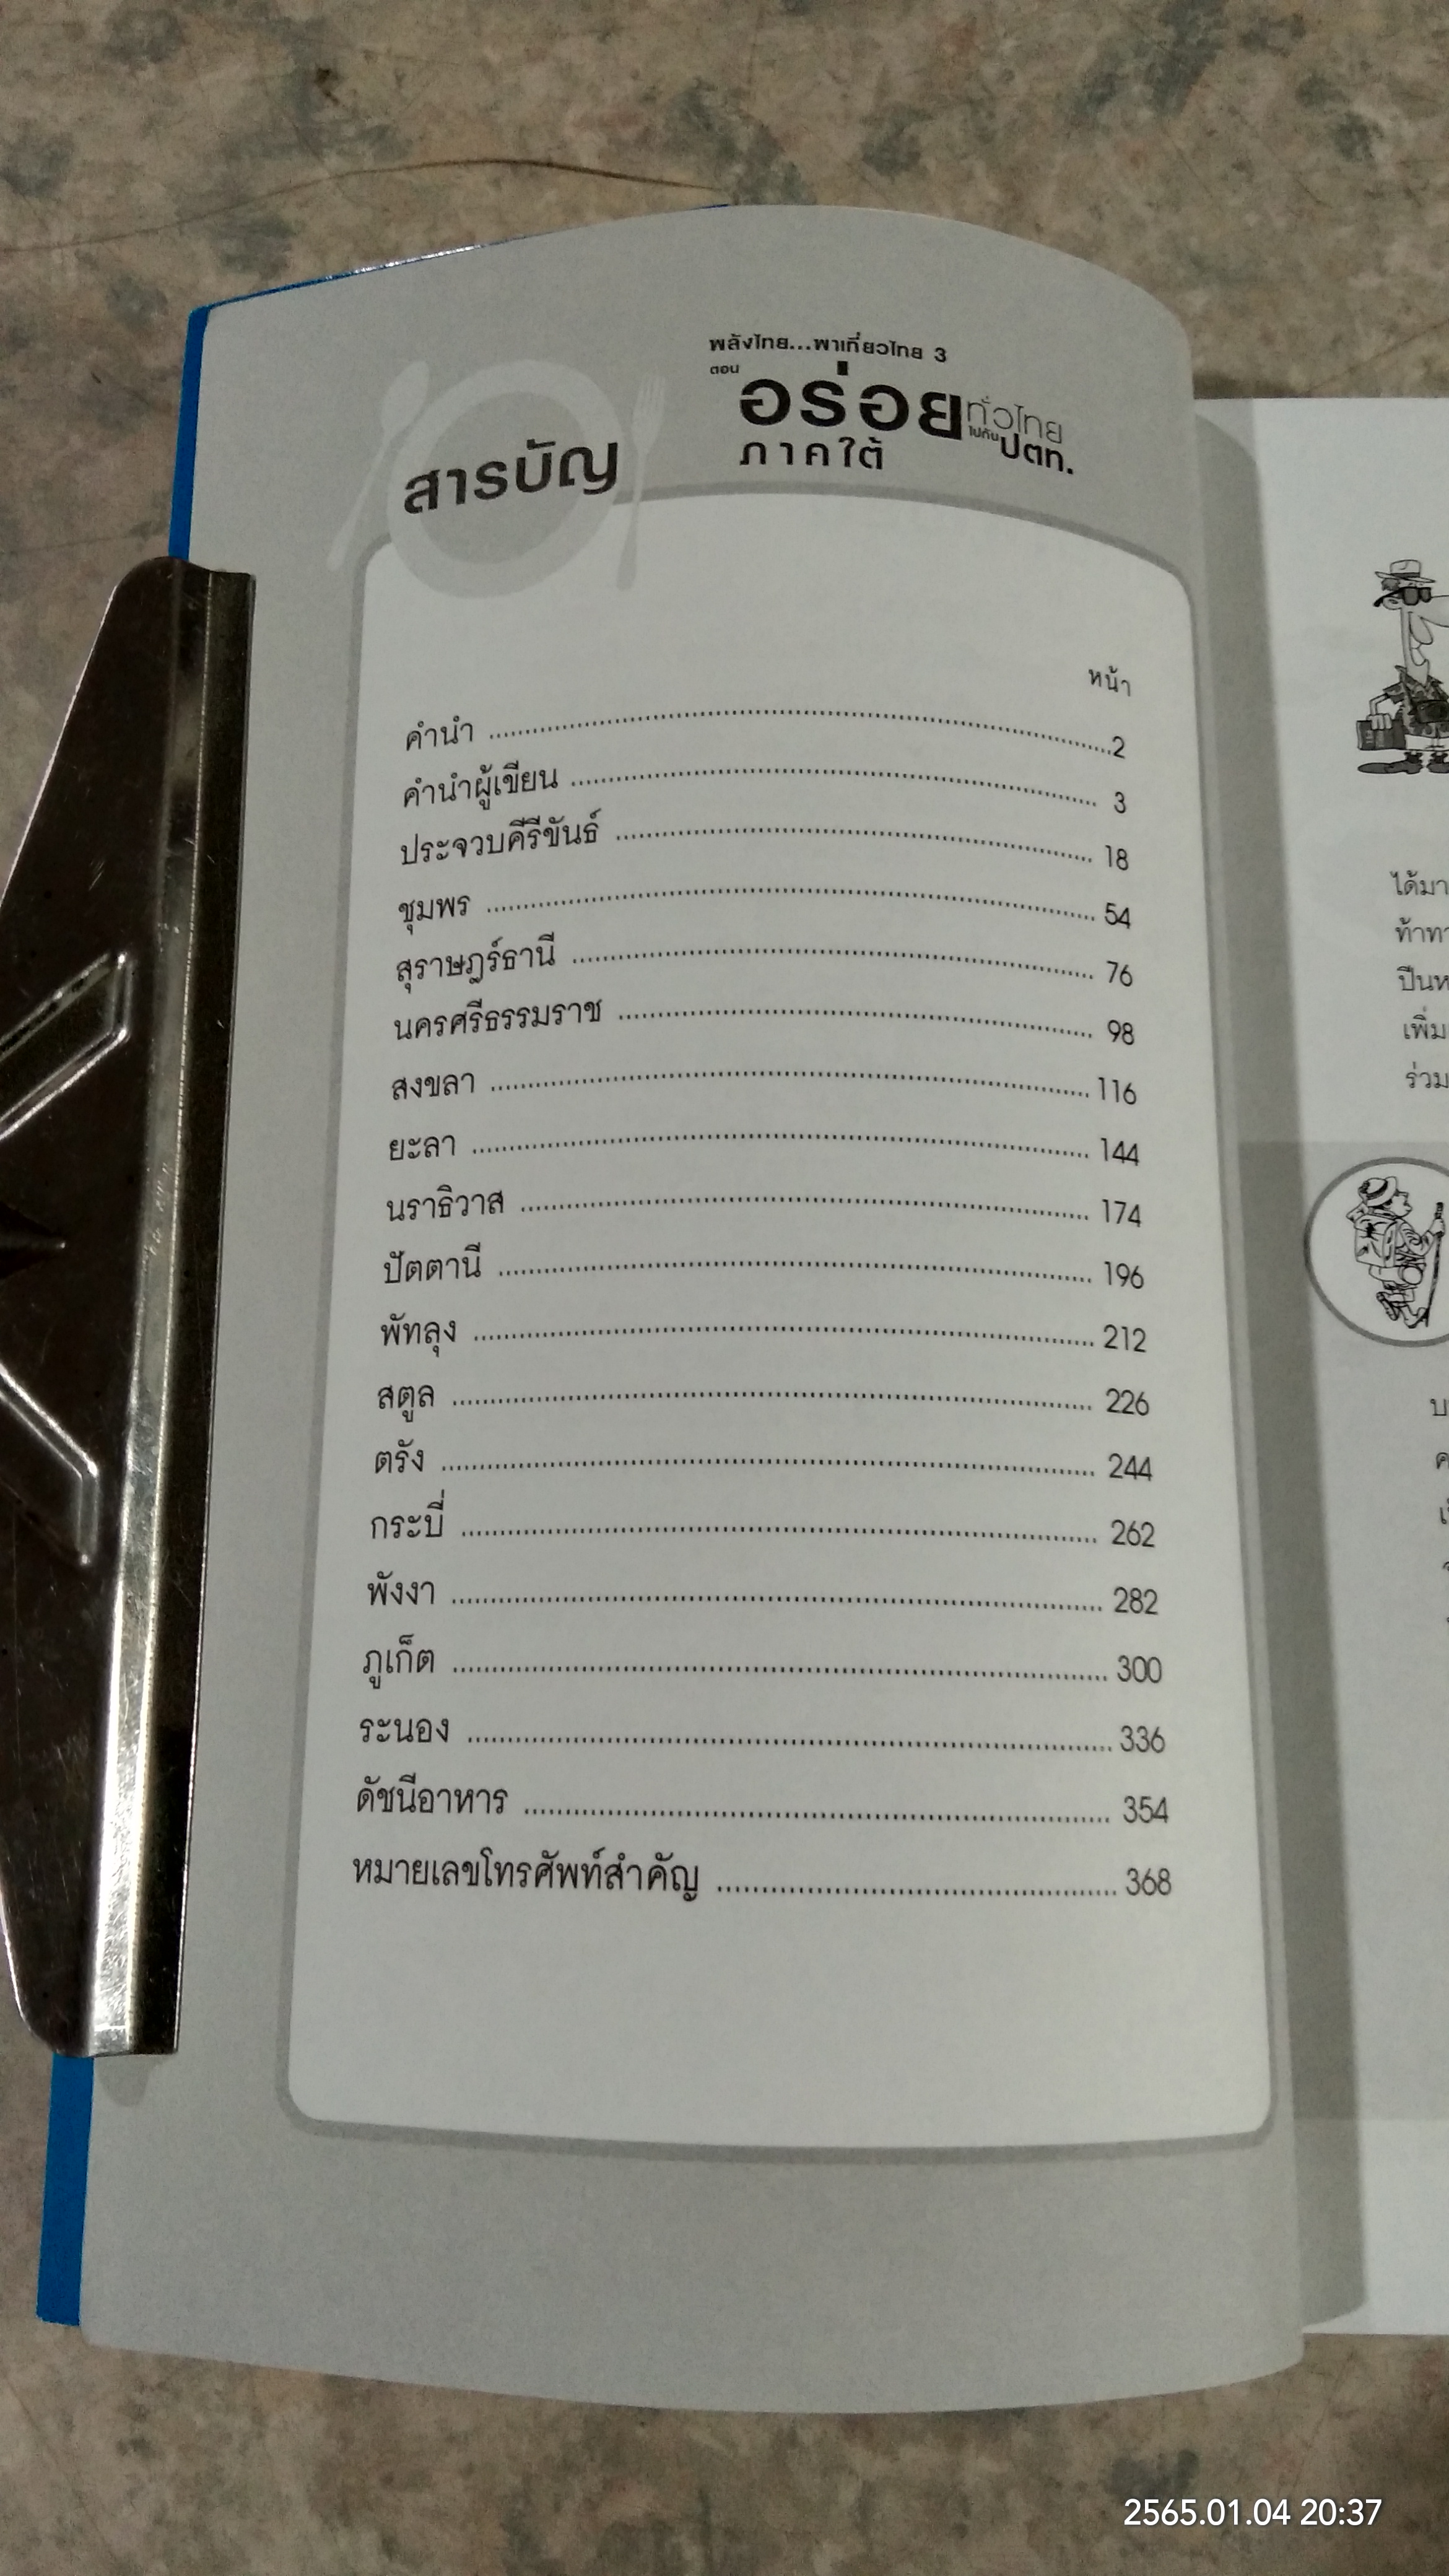 พลังไทย...พาเที่ยวไทย 3
ตอน
อร่อยทั่วไทย
ไปกับ ปตท.
ภาคใต้
สารบัญ
หน้า
คำนำ ........ 2
คำนำผู้เขียน ........ 3
ประจวบคีรีขันธ์ ........ 18
ชุมพร ........ 54
สุราษฎร์ธานี ........ 76
นครศรีธรรมราช ........ 98
สงขลา ........ 116
ยะลา ........ 144
นราธิวาส ........ 174
ปัตตานี ........ 196
พัทลุง ........ 212
สตูล ........ 226
ตรัง ........ 244
กระบี่ ........ 262
พังงา ........ 282
ภูเก็ต ........ 300
ระนอง ........ 336
ดัชนีอาหาร ........ 354
หมายเลขโทรศัพท์สำคัญ ........ 368
ได้มา
ปืนห
เพิ่ม
ร่วม
2565.01.04 20:37